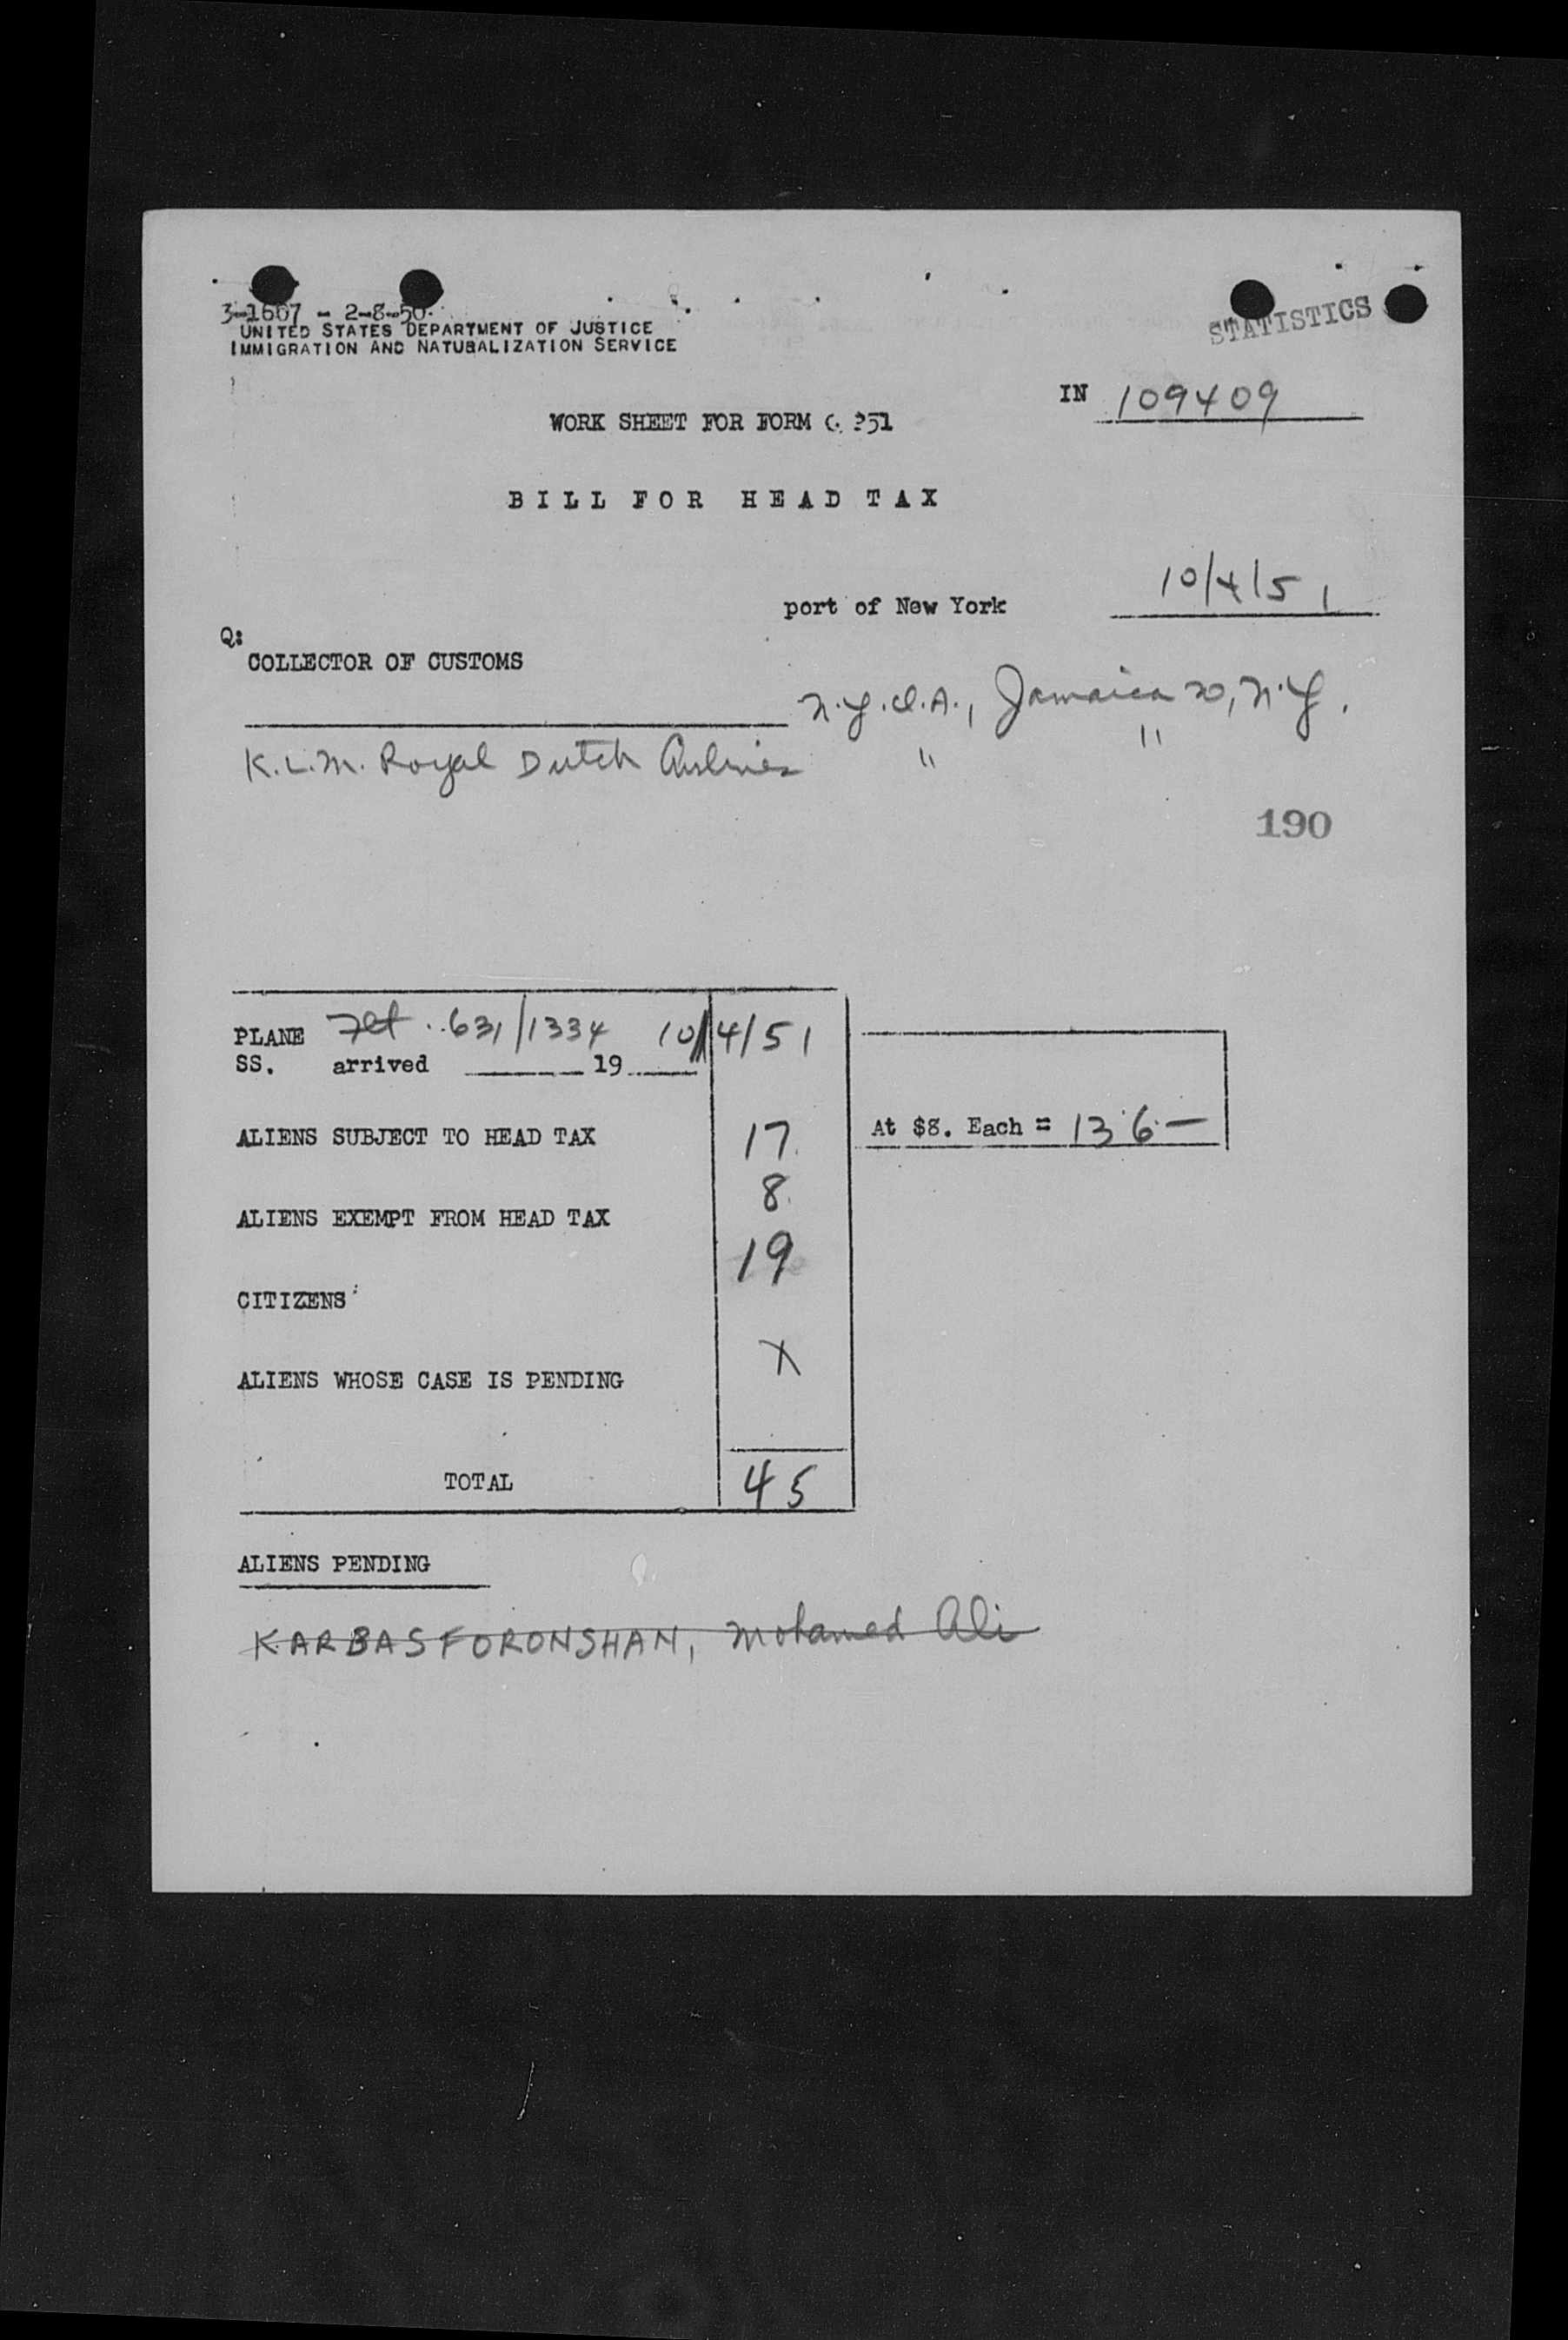 3-1607 - 2-8-50
UNITED STATES DEPARTMENT OF JUSTICE
IMMIGRATION AND NATURALIZATION SERVICE
STATISTICS
IN 109409
WORK SHEET FOR FORM G. 351
BILL FOR HEAD TAX
port of New York 10/4/51
Q:
COLLECTOR OF CUSTOMS
N.Y.I.A., Jamaica 20, N.Y.
K.L.M. Royal Dutch Airlines " "
190
PLANE Flt. 631/1334 10/4/51
SS. arrived 19
ALIENS SUBJECT TO HEAD TAX 17 At $8. Each = 136-
ALIENS EXEMPT FROM HEAD TAX 8
CITIZENS 19
ALIENS WHOSE CASE IS PENDING X
TOTAL 45
ALIENS PENDING
KARBASFORONSHAN, Mohamed Ali